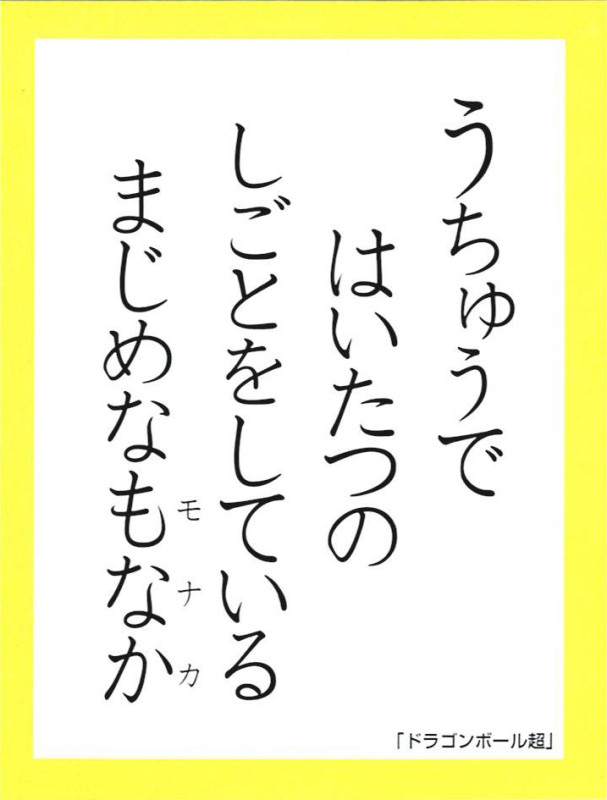 うちゅうで
はいたつの
しごとをしている
まじめなもなか
モナカ
「ドラゴンボール超」